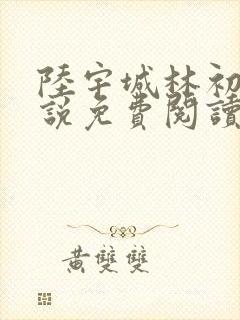 陸宇城林初
說免費閱讀
黃雙雙